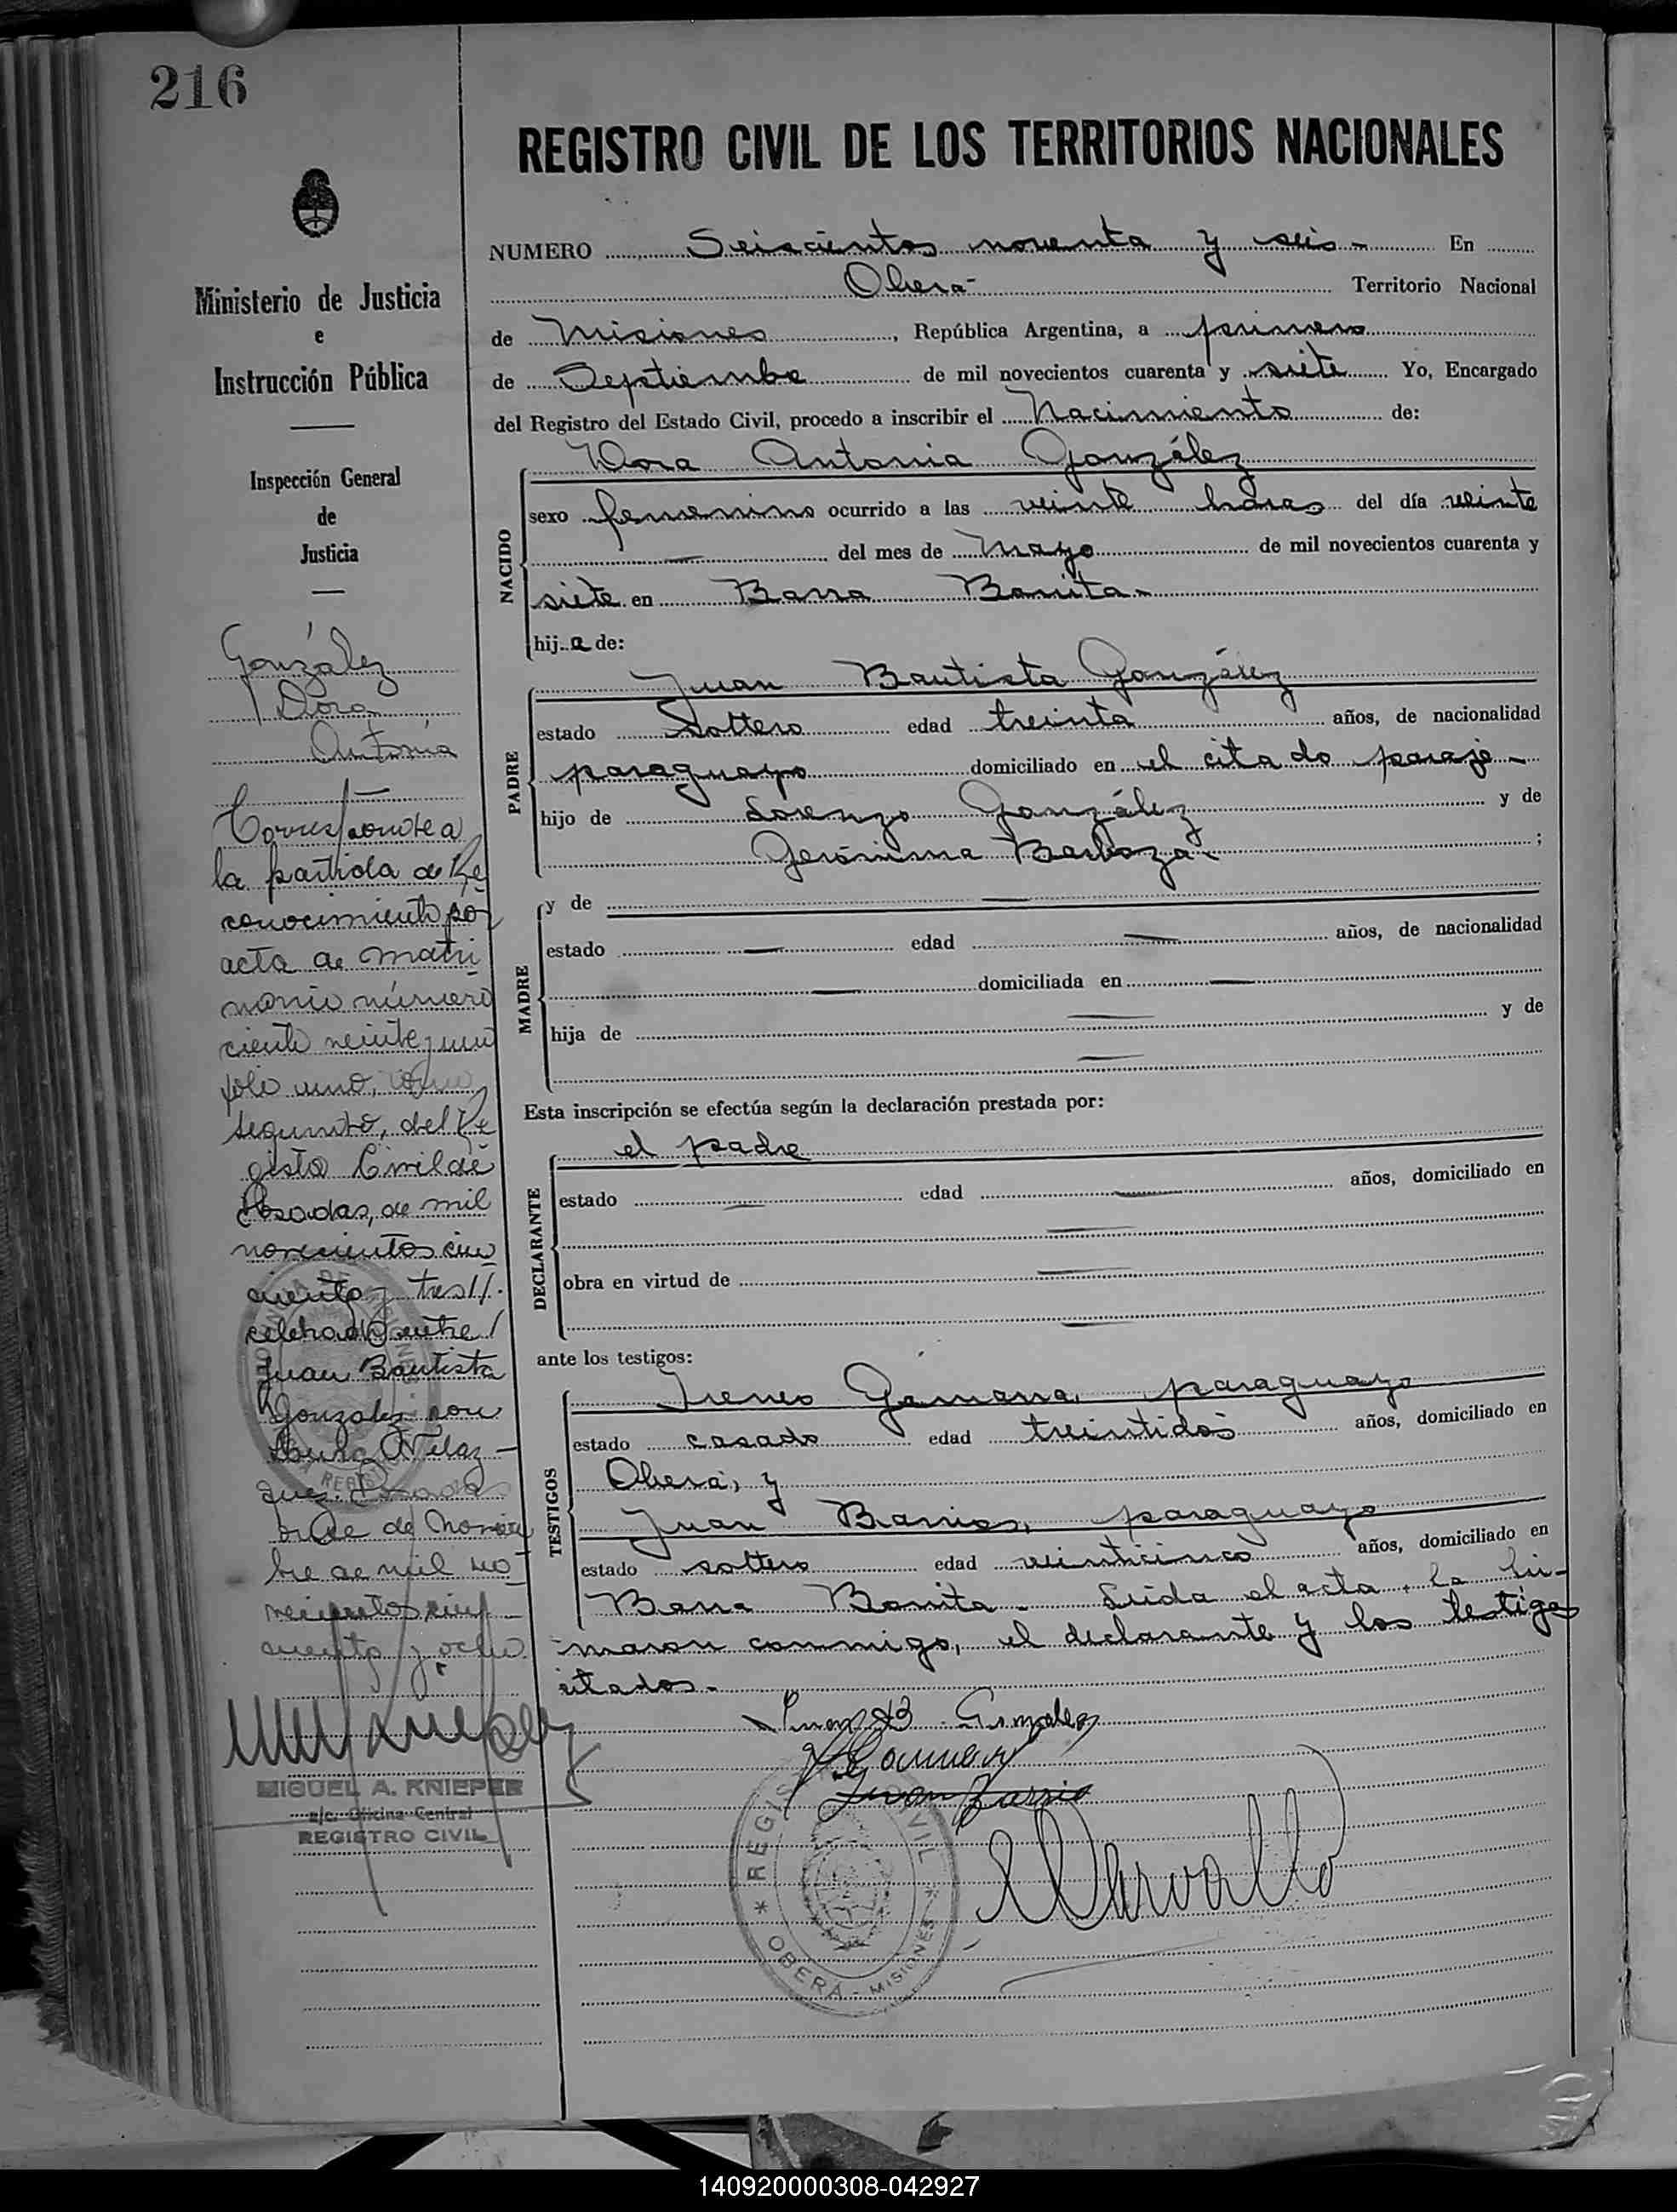 216
Ministerio de Justicia
e
Instrucción Pública
Inspección General
de
Justicia
González
Dora
Antonia
Corresponde a
la partida de Re
conocimiento por
acta de matri
monio número
ciento veinte y uno
folio uno, tomo
segundo, del Re
gistro Civil de
Posadas, de mil
novecientos cin
cuenta y tres//.
celebrado entre/
Juan Bautista
Gonzalez con
Velaz-
quez. Posadas
once de Noviem
bre de mil no-
vecientos cin-
cuenta y ocho
MIGUEL A. KNIEPER
a/c. Oficina Central
REGISTRO CIVIL
REGISTRO CIVIL DE LOS TERRITORIOS NACIONALES
NUMERO Seiscientos noventa y seis - En
Oberá - Territorio Nacional
de Misiones, República Argentina, a primero
de Septiembe de mil novecientos cuarenta y siete Yo, Encargado
del Registro del Estado Civil, procedo a inscribir el Nacimiento de:
NACIDO
Dora Antonia González
sexo femenino ocurrido a las veinte horas del día veinte
— del mes de Mayo de mil novecientos cuarenta y
siete en Barra Bonita -
hija de:
PADRE
Juan Bautista González
estado soltero edad treinta años, de nacionalidad
paraguayo domiciliado en el citado paraje -
hijo de Lorenzo González y de
Gerónima Barboza - ;
MADRE
y de —
estado — edad — años, de nacionalidad
— domiciliada en —
hija de — y de
—
Esta inscripción se efectúa según la declaración prestada por:
DECLARANTE
el padre
estado — edad — años, domiciliado en
—
obra en virtud de —
—
ante los testigos:
TESTIGOS
Ireneo Gamarra, paraguayo
estado casado edad treintidos años, domiciliado en
Oberá, y
Juan Barrios, paraguayo
estado soltero edad veinticinco años, domiciliado en
Barra Bonita - Leida el acta, la fir-
maron conmigo, el declarante y los testigos
citados -
Juan B Gonzalez
Juan Barrio
REGISTRO CIVIL
* OBERÁ - MISIONES *
140920000308-042927